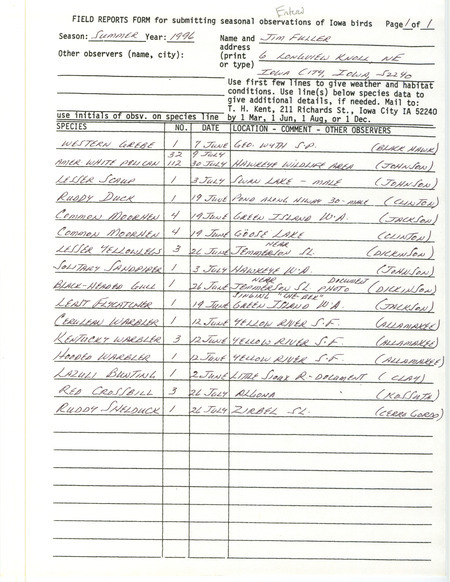 Entered
FIELD REPORTS FORM for submitting seasonal observations of Iowa birds Page 1 of 1
Season: SUMMER Year: 1996 Name and JIM FULLER
address
Other observers (name, city): (print 6 LONGVIEW KNOLL NE
or type) IOWA CITY, IOWA, 52240
Use first few lines to give weather and habitat
conditions. Use line(s) below species data to
give additional details, if needed. Mail to:
T. H. Kent, 211 Richards St., Iowa City IA 52240
use initials of obsv. on species line by 1 Mar, 1 Jun, 1 Aug, or 1 Dec.
SPECIES NO. DATE LOCATION - COMMENT - OTHER OBSERVERS
WESTERN GREBE 1 7 JUNE GEO. WYTH S.P. (BLACK HAWK)
32 9 JULY
AMER WHITE PELICAN 112 30 JULY HAWKEYE WILDLIFE AREA (JOHNSON)
LESSER SCAUP 1 3 JULY SWAN LAKE - MALE (JOHNSON)
RUDDY DUCK 1 19 JUNE POND ALONG HIWAY 30 - MALE (CLINTON)
COMMON MOORHEN 4 19 JUNE GREEN ISLAND W.A. (JACKSON)
COMMON MOORHEN 4 19 JUNE GOOSE LAKE (CLINTON)
NEAR
LESSER YELLOWLEGS 3 26 JUNE JEMMERSON SL. (DICKINSON)
SOLITARY SANDPIPER 1 3 JULY HAWKEYE W.A. (JOHNSON)
NEAR DOCUMENT
BLACK-HEADED GULL 1 26 JUNE JEMMERSON SL. PHOTO (DICKINSON)
SINGING "CHE-BEK"
LEAST FLYCATCHER 1 19 JUNE GREEN ISLAND W.A. (JACKSON)
CERULEAN WARBLER 1 12 JUNE YELLOW RIVER S.F. (ALLAMAKEE)
KENTUCKY WARBLER 3 12 JUNE YELLOW RIVER S.F. (ALLAMAKEE)
HOODED WARBLER 1 12 JUNE YELLOW RIVER S.F. (ALLAMAKEE)
LAZULI BUNTING 1 2 JUNE LITTLE SIOUX R - DOCUMENT (CLAY)
RED CROSSBILL 3 26 JULY ALGONA (KOSSUTH)
RUDDY SHELDUCK 1 26 JULY ZIRBEL SL. (CERRO GORDO)